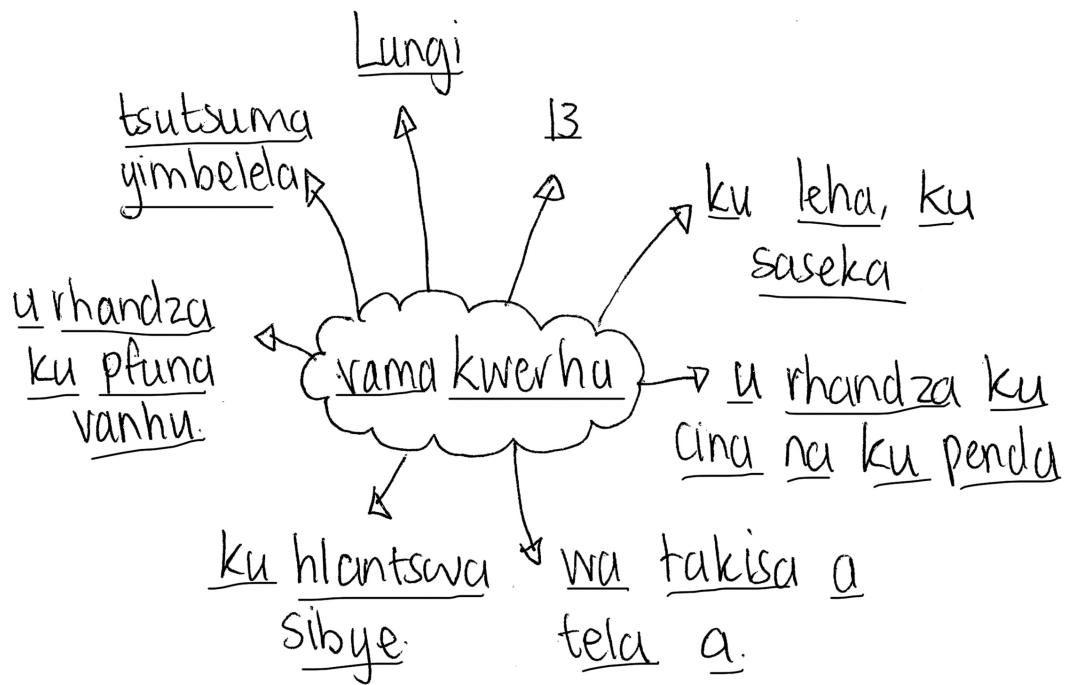 Lungi
13
tsutsuma
yimbelela
ku leha, ku
saseka
u rhandza
ku pfuna
vanhu.
vama kwerhu
u rhandza ku
cina na ku penda
ku hlantswa
sibye.
wa takisa a
tela a.